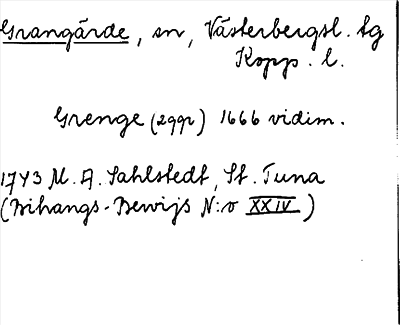 Grangärde, sn, Västerbergsl. tg
Kopp. l.
Grenge (2ggr) 1666 vidim.
1743 M. A. Sahlstedt, St. Tuna
(Bihangs-Bewijs N:o XXIV)